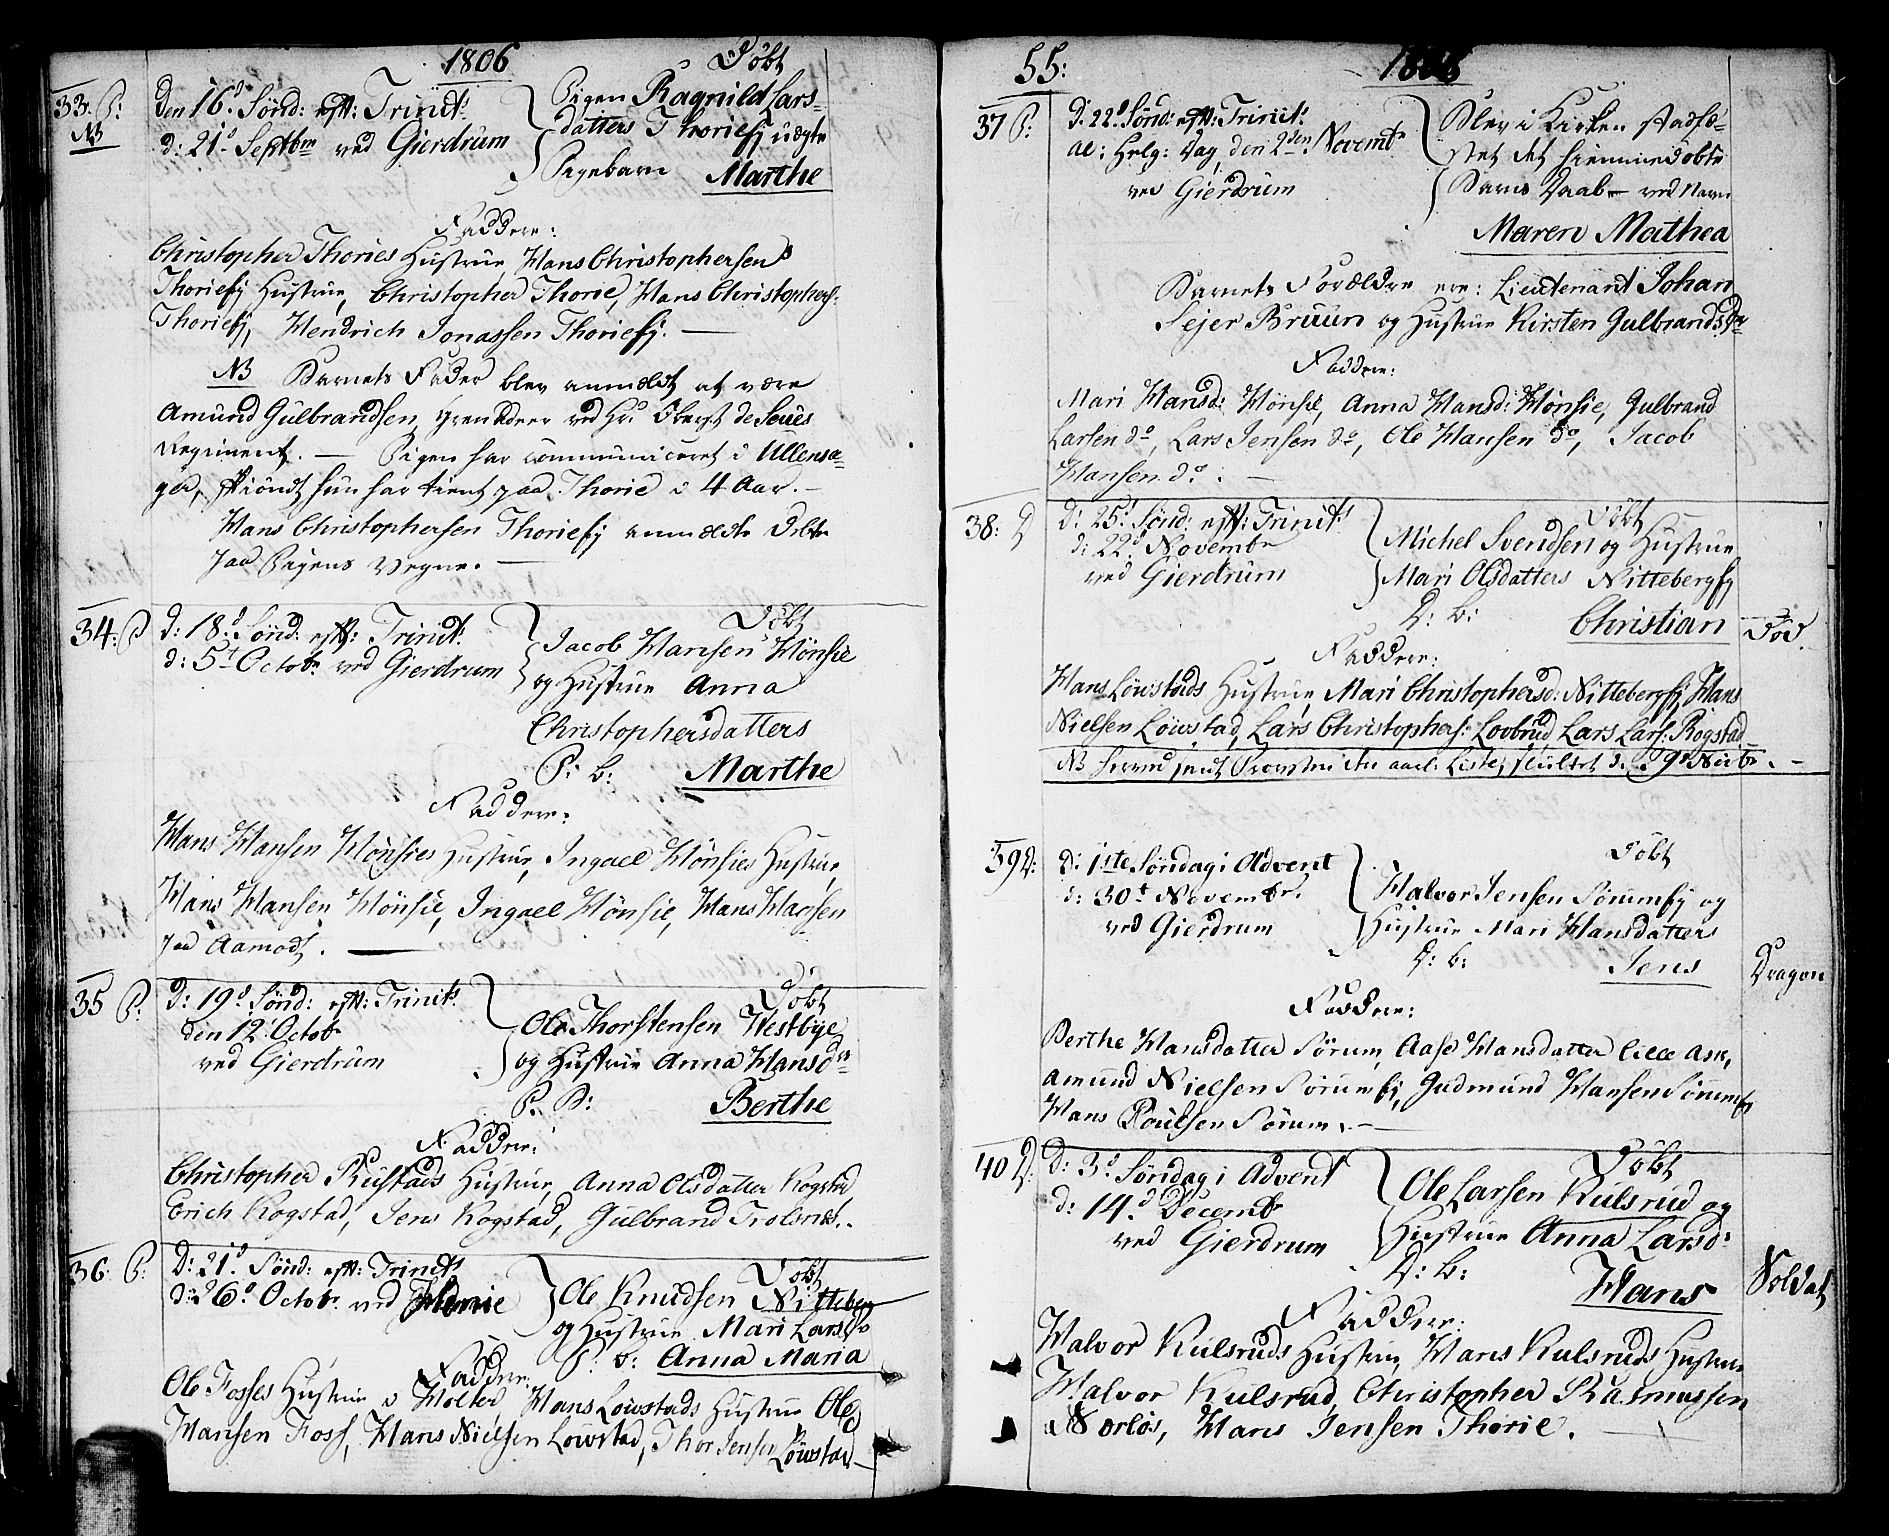 1806
Döbt
33. P:
NB
Den 16d Sønd: eft: Trinit:
d: 21d Septbr ved Gierdrum
Pigen Ragnild Lars-
datters Thorieej uægte
Pigebarn Marthe
Faddere:
Christopher Thories Hustrue, Hans Christophersen
Thorieej Hustrue, Christopher Thorie, Hans Christophers:
Thorieej, Hendrich Jonassen Thorieej. —
NB Barnets Fader blev anmeldt at være
Amund Gulbrandsen, Grenadeer ved Hr. Oberst de Seues
Regiment. — Pigen har communiceret i Ullensa-
ger, skiöndt hun har tient paa Thorie i 4 Aar. —
Hans Christophersen Thorieej anmeldte dette
paa Pigens Vegne. —
34. P
D: 18d Sønd: eft: Trinit:
d: 5t Octobr ved Gierdrum
Döbt
Jacob Hansen Hönsie
og Hustrue Anna
Christophersdatters
P: b: Marthe
Faddere:
Hans Hansen Hönsies Hustrue, Ingael Hönsies Hustrue,
Hans Hansen Hönsie, Ingael Hönsie, Hans Hansen
paa Aamodt. —
35 P:
D: 19d Sønd: eft: Trinit:
den 12 Octobr
ved Gierdrum
Döbt
Ole Thorstensen Westbye
og Hustrue Anna Hansdr
P: B: Berthe
Faddere:
Christopher Rustads Hustrue, Anna Olsdatter Rogstad,
Erich Rogstad, Jens Rogstad, Gulbrand Trolsnes.
36. P:
D: 21d Sønd: eft: Trinit:
d: 26d Octobr ved
Döbt
Ole Knudsen Nitteberg
og Hustrue Mari Larsdr
P: b: Anna Maria
Faddere:
Ole Fosses Hustrue i Holter, Hans Löwstads Hustrue, Ole
Hansen Foss, Hans Nielsen Lowstad, Thor Jensen Löwstad —
55:
1806
37 P:
D: 22d Sønd: eft: Trinit:
al: Helg: Dag, den 2den Novembr
ved Gierdrum
Blev i Kirken stadfæ-
stet det hiemmedöbte
Barns Daab — ved Navn
Maren Mathea
Barnets Forældre ere: Lieutenant Johan
Sejer Bruun og Hustrue Kirsten Gulbrandsdr
Faddere:
Mari Hansd: Hönsie, Anna Hansd: Hönsie, Gulbrand
Larsen do, Lars Jensen do, Ole Hansen do, Jacob
Hansen do. —
38: D
D: 25d Sønd: eft: Trinit:
d: 22d Novembr
ved Gierdrum
Döbt
Michel Svendsen og Hustrue
Mari Olsdatters Nittebergej
D: b: Christian
Död.
Faddere:
Hans Löwstads Hustrue, Mari Christophersd: Nittebergej, Hans
Nielsen Löwstad, Lars Christophers: Lovbrud, Lars Lars: Rogstad
NB herved sendt Provsten den aarl: Liste, sluttet d: 29d Novbr. —
39 D:
D: 1ste Söndag i Advent
d: 30t Novembr.
ved Gierdrum
Döbt
Halvor Jensen Sörumej og
Hustrue Mari Hansdatters
D: b: Jens
Dragon
Faddere:
Berthe Hansdatter Sörum, Aase Hansdatter Lille Ask,
Amund Nielsen Sörumej, Gudmund Hansen Sörumej
Hans Poulsen Sörum. —
40 D:
D: 3d Söndag i Advent
d: 14d Decembr
ved Gierdrum
Döbt
Ole Larsen Kulsrud og
Hustrue Anna Larsd:
D: b: Hans
Soldat
Faddere:
Halvor Kulsruds Hustrue, Hans Kulsruds Hustrue
Halvor Kulsrud, Christopher Rasmussen
Norlös, Hans Jensen Thorie. —